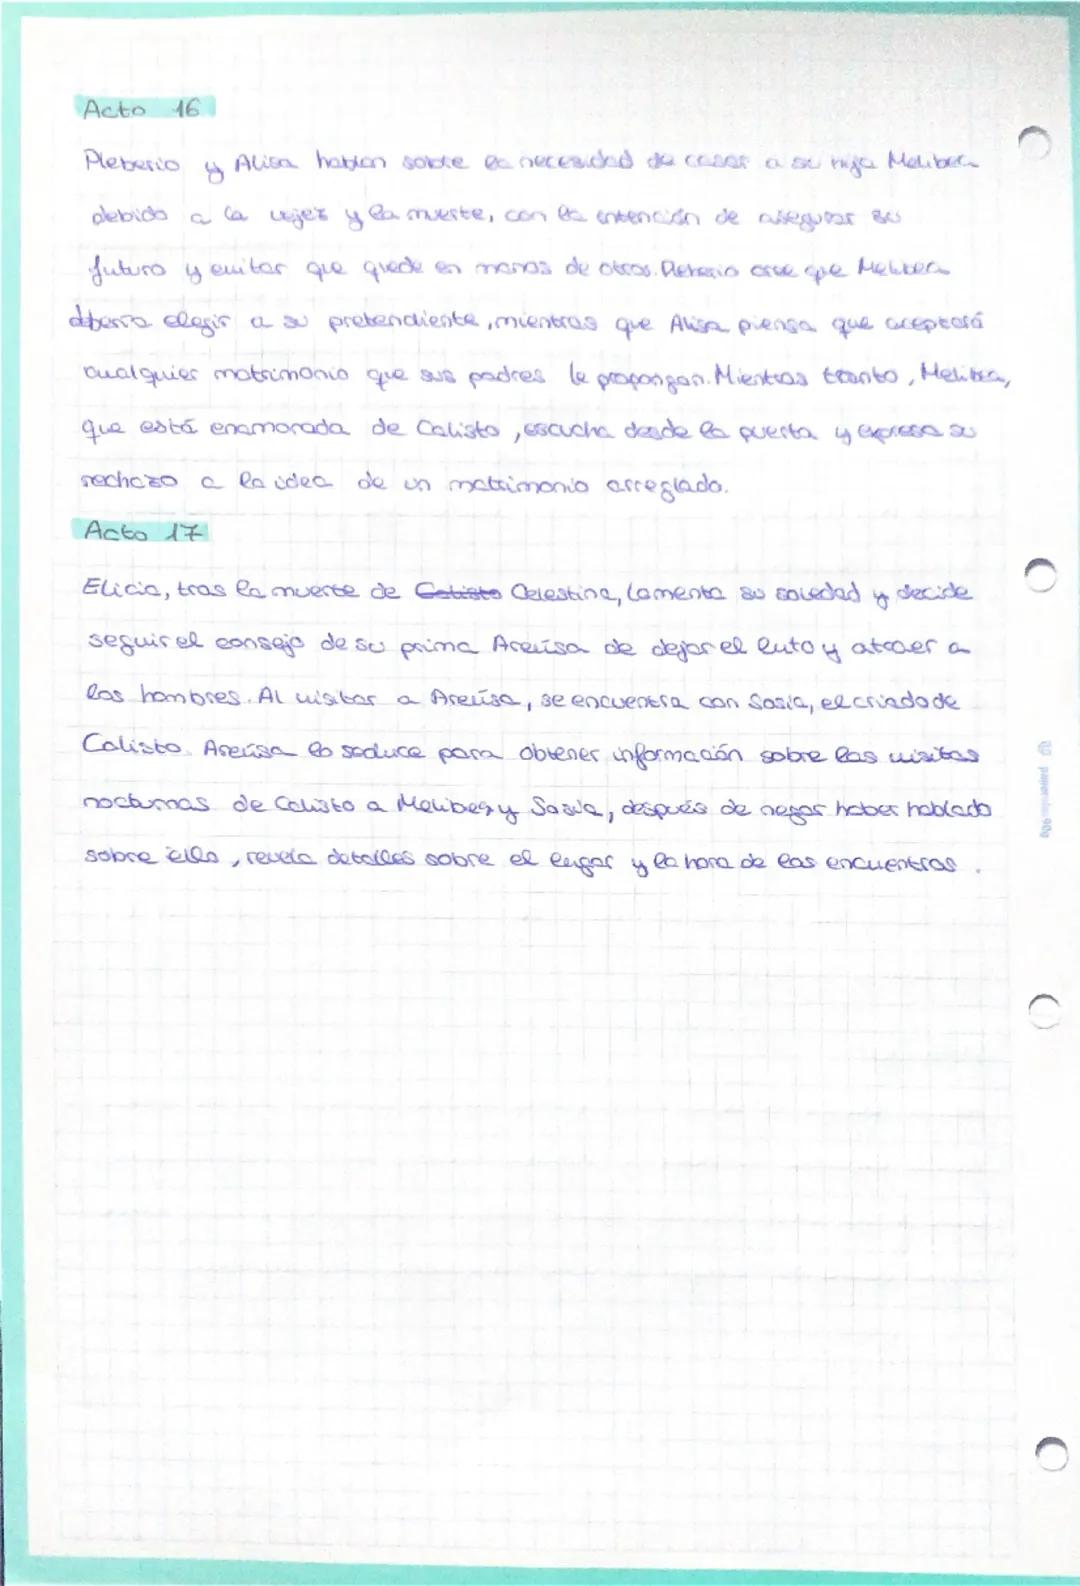 Acto 16
Pleberio y Alisa hablan sobre la necesidad de casar a su hija Melibea
debido a la vejez y la muerte, con la intención de asegurar su
futuro y evitar que quede en manos de otros. Pleberio cree que Melibea
debería elegir a su pretendiente, mientras que Alisa piensa que aceptará
cualquier matrimonio que sus padres le propongan. Mientras tanto, Melibea,
que está enamorada de Calisto, escucha desde la puerta y expresa su
rechazo a la idea de un matrimonio arreglado.
Acto 17
Elicia, tras la muerte de Calisto Celestina, lamenta su soledad y decide
seguir el consejo de su prima Areúsa de dejar el luto y atraer a
los hombres. Al visitar a Areúsa, se encuentra con Sosia, el criado de
Calisto. Areúsa lo seduce para obtener información sobre las visitas
nocturnas de Calisto a Melibea, y Sosia, después de negar haber hablado
sobre ello, revela detalles sobre el lugar y la hora de los encuentros.